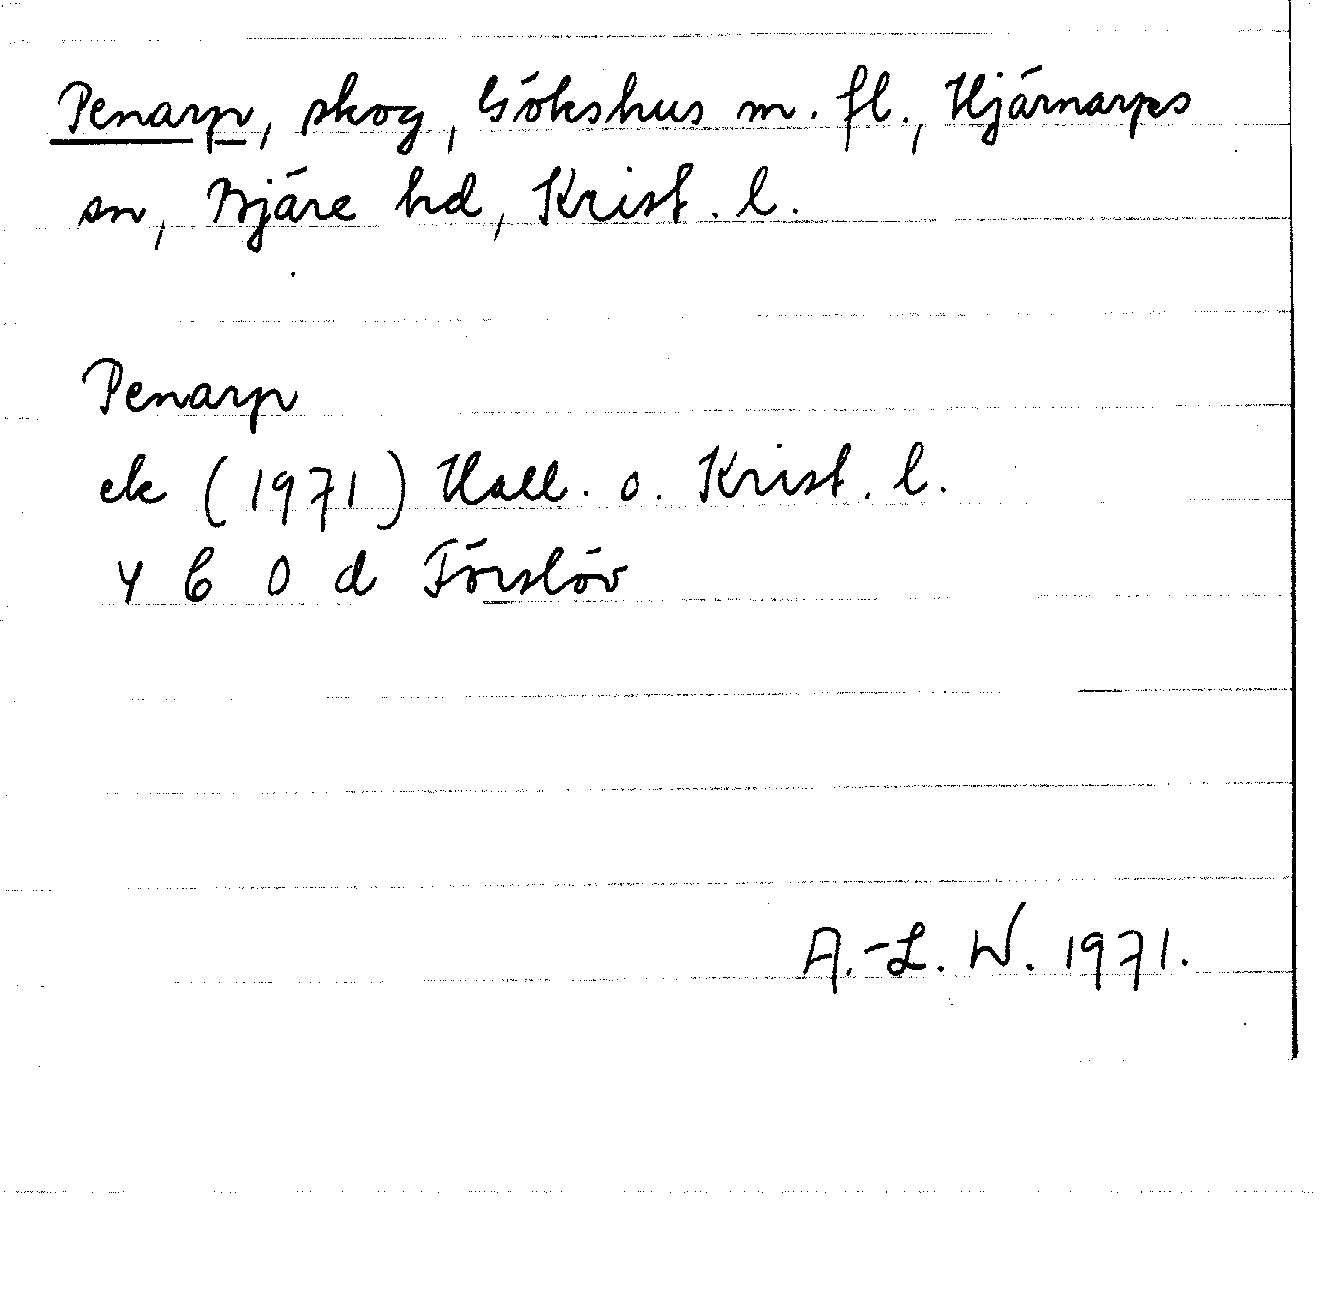 Penarp, skog, Gökshus m. fl., Hjärnarps
sn, Bjäre hd, Krist. l.
Penarp
ek (1971) Hall. o. Krist. l.
4 C 0 d Förslöv
A.-L. W. 1971.